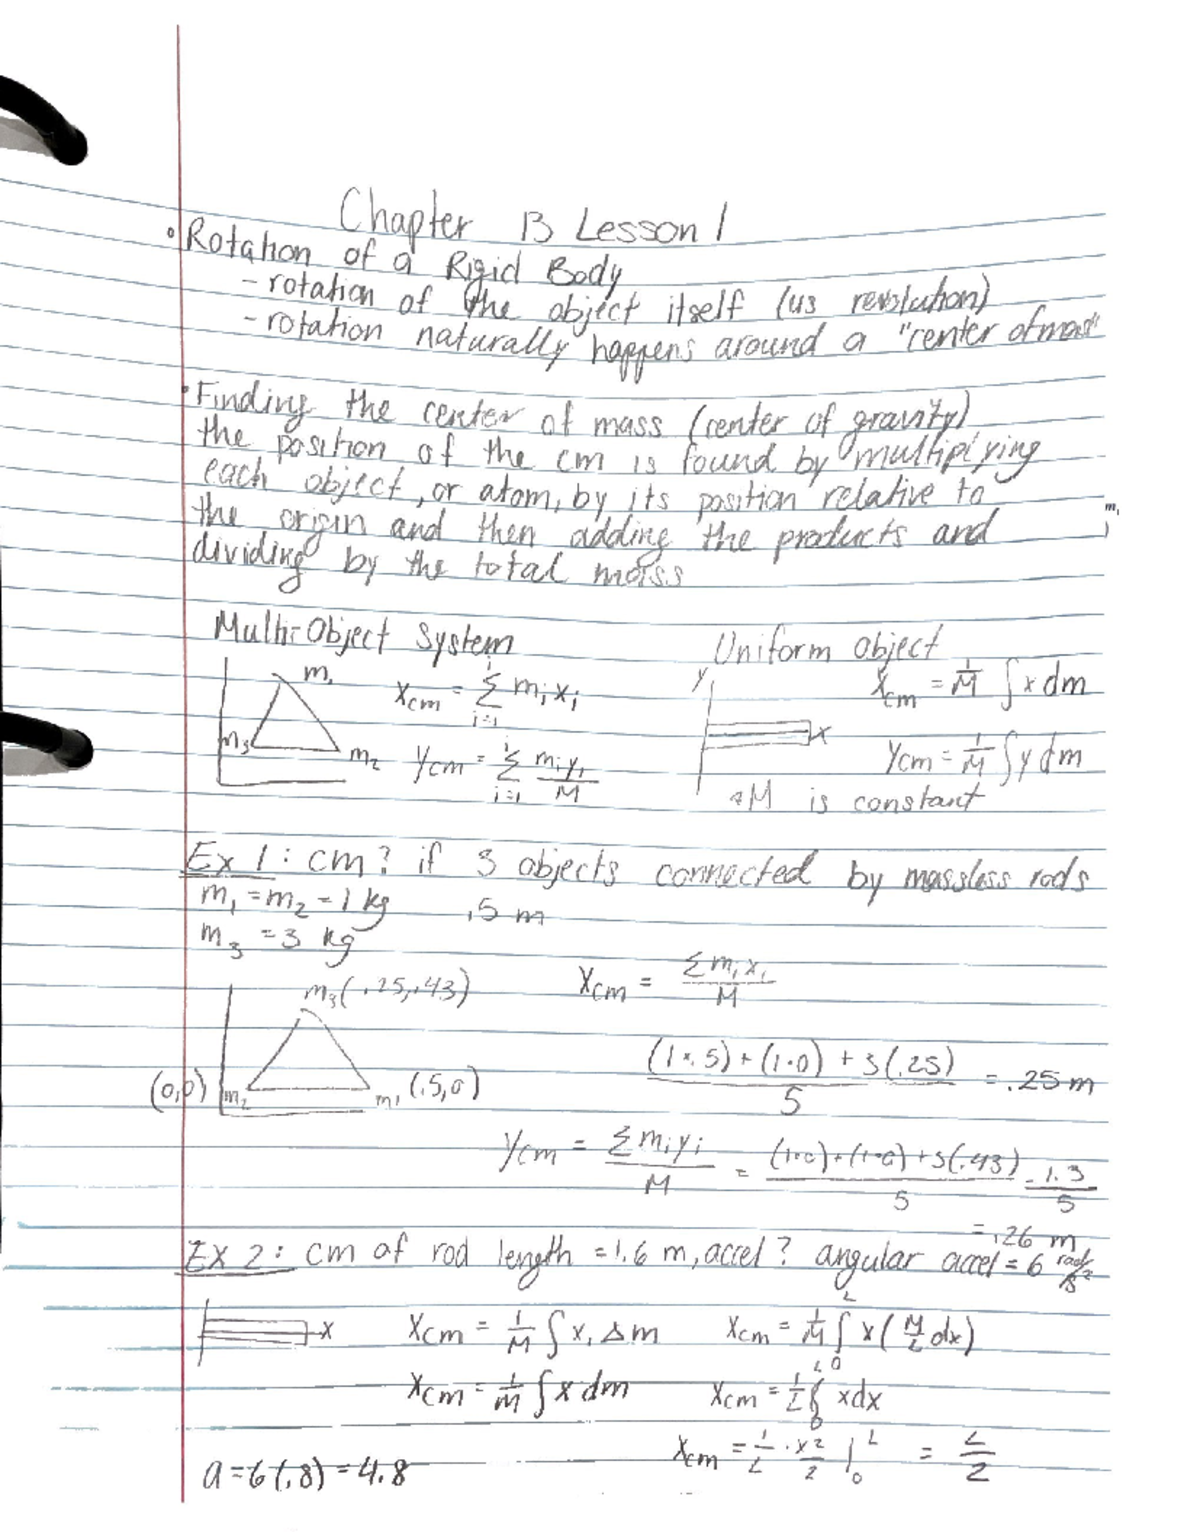 Chapter 13 Lesson 1
• Rotation of a Rigid Body
- rotation of the object itself (vs revolution)
- rotation naturally happens around a "center of mass"
• Finding the center of mass (center of gravity)
the position of the cm is found by multiplying
each object, or atom, by its position relative to
the origin and then adding the products and
dividing by the total mass
m₁
Multi-Object System
m₁
m₃
m₂
Xcm = i Σ i=1 mᵢxᵢ
Ycm = i Σ i=1 mᵢyᵢ/M
Uniform object
y
x
Xcm = 1/M ∫ x dm
Ycm = 1/M ∫ y dm
*M is constant
Ex 1: cm? if 3 objects connected by massless rods
m₁ = m₂ = 1 kg .5 m
m₃ = 3 kg
m₃(.25,.43)
Xcm = Σmᵢxᵢ/M
(0,0) m₂ m₁ (.5,0)
(1×.5) + (1·0) + 3(.25)/5 = .25 m
Ycm = Σmᵢyᵢ/M = (1·0)+(1·0)+3(.43)/5 = 1.3/5
= .26 m
Ex 2: cm of rod length = 1.6 m, accel? angular accel = 6 rad/s²
x
Xcm = 1/M ∫ xᵢ Δm
Xcm = 1/M ∫₀ᴸ x(M/L dx)
Xcm = 1/M ∫ x dm
Xcm = 1/L ∫₀ᴸ xdx
a = 6(.8) = 4.8
Xcm = 1/L · x²/2 |₀ᴸ = L/2